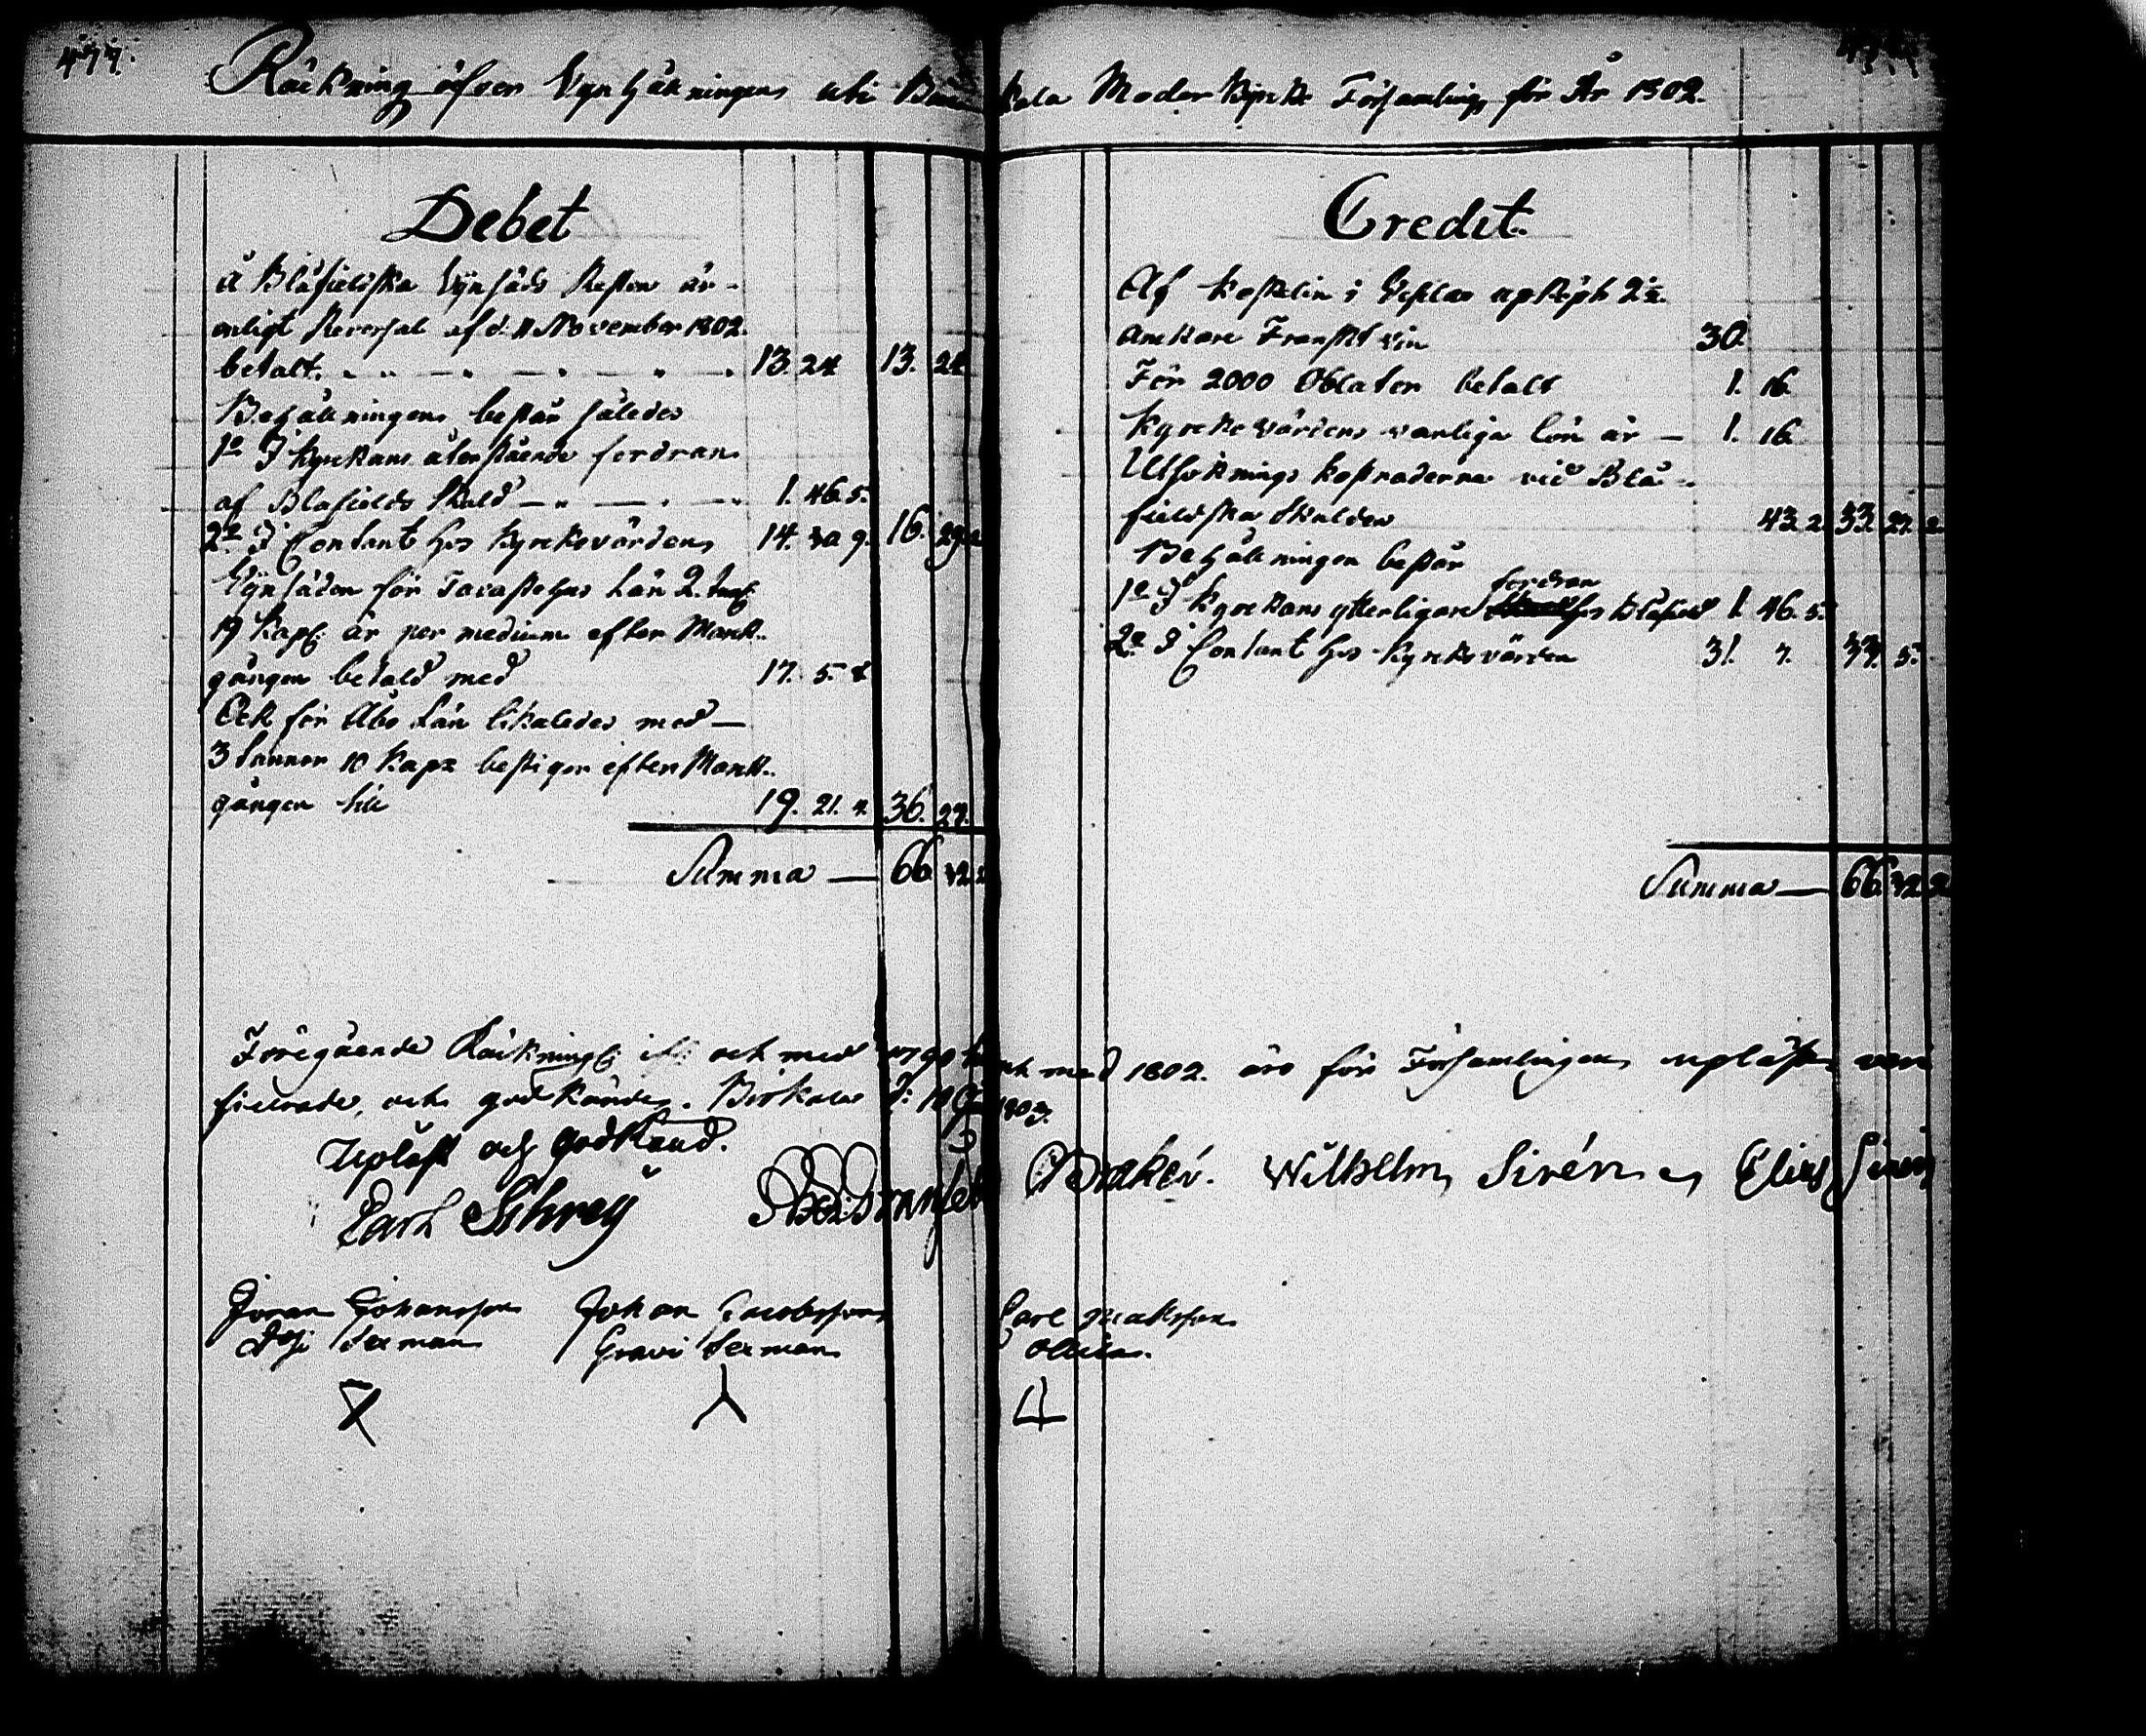 477.
Räkning öfver Vynhäkningens uti Birkala Moder Kyrko Församling för År 1802.
Debet
å Blåfieldska Vynsäds Resten är
enligt Reversal af d. 11 November 1802.
betalt. 13. 24 13. 24
Behållningen består således
1o I Kyrkans återstående fordran
af Blåfields Skuld 1. 46. 5.
2o I Contant hos Kyrkovärden 14. 30 9. 16. 29. 2
Vynsäden för Tavastehus Län 2. tunn
19 Kapp. är per medium efter Mark-
gången betald med 17. 5. 8
Och för Åbo Län likaledes med
3 tunnor 10 Kapp. bestiger efter Mark-
gången till 19. 21. 4. 36. 27.
Summa 66 32 2
Credit.
Af Kostelin i Veslax upköpt 2½
Anckare Franskt vin 30.
För 2000 Oblater betalt 1. 16.
Kyrko Värdens vanliga lön är 1. 16
Utsöknings kostnaderne vid Blå-
fieldska Skulden 43. 2. 33. 27. 2
Behållningen består
fordran
1o I Kyrkans ytterligare hos Blåfield 1. 46. 5.
2o I Contant hos Kyrkovärden 31. 7. 33. 5.
Summa 66. 32. 2
Föregående Räkningar och med 1802. äro för Församlingen upläste veri
ficerade, och godkände. Birkala d: 10 1803.
Upläst och godkänd.
Carl Schrey Wilhelm Sirén Elias Siren
Jöran Johansson Johan Jacobsson Carl Mattsson
Sexman Gravi Sexman Ollila.